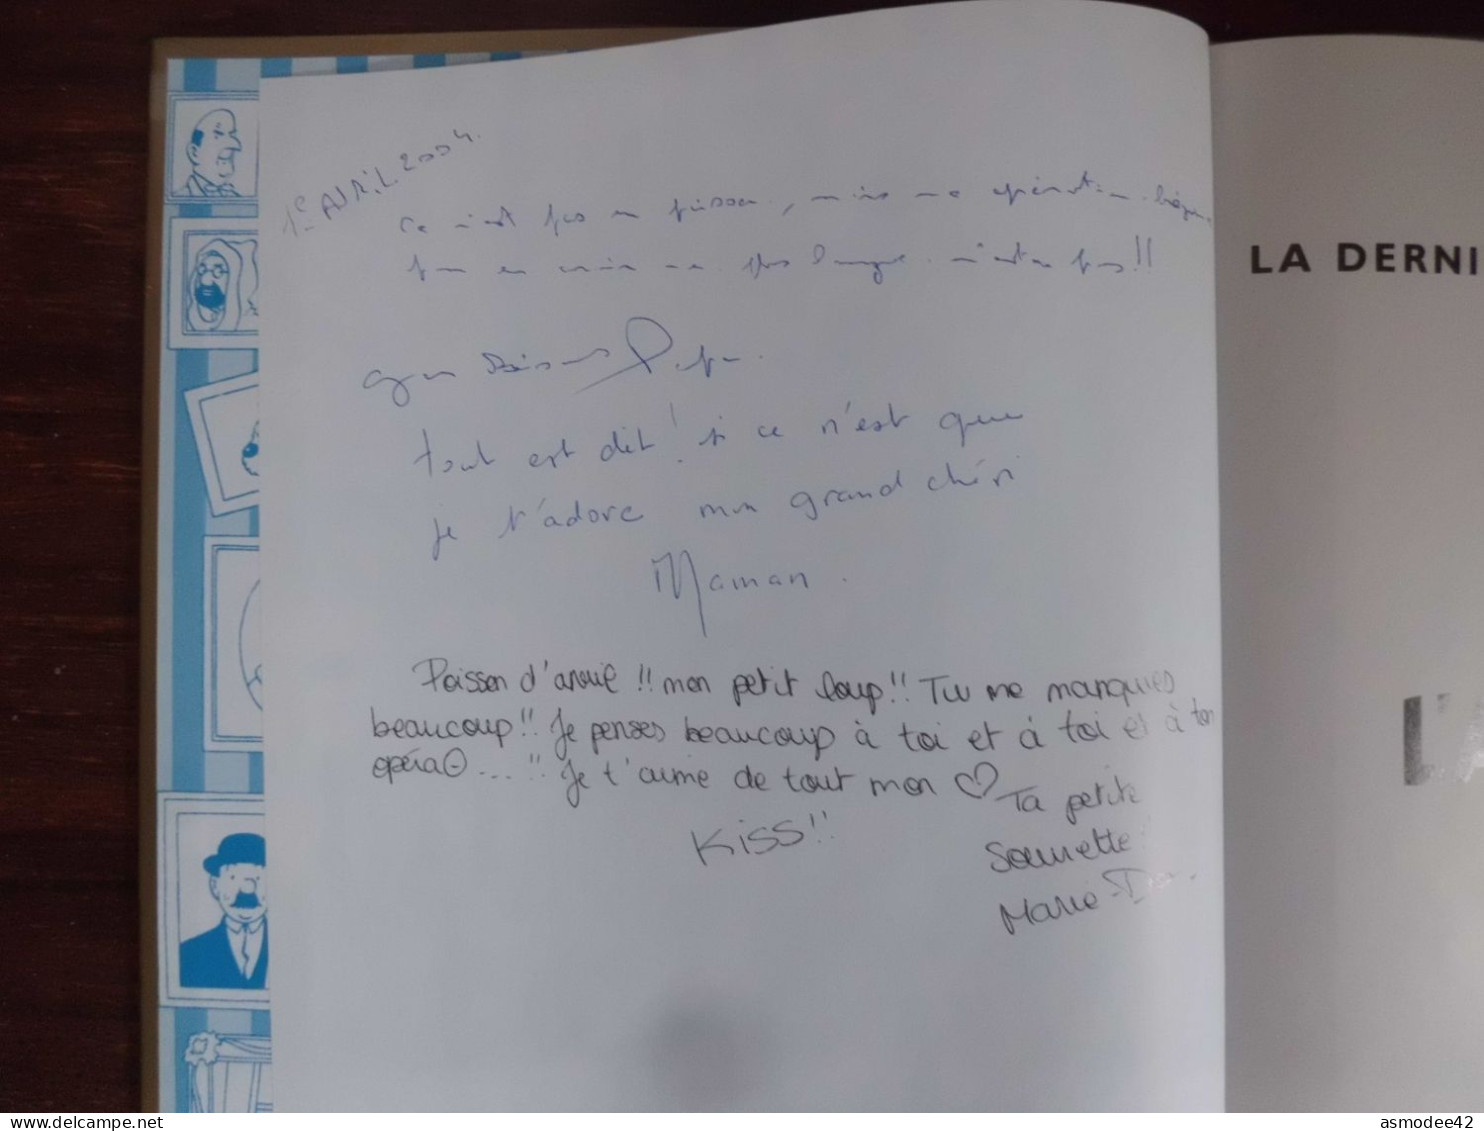 1er AVRIL 2004.
Ce n'est pas un poisson, mais une opération
pas!!
Gros Bisous Papa.
tout est dit! si ce n'est que
je t'adore mon grand chéri
Maman.
Poisson d'avril !! mon petit loup!! Tu me manques
beaucoup!! Je penses beaucoup à toi et à toi et à ton
opéra☹....!! Je t'aime de tout mon ♡
Ta petite
Kiss!!
Soeurette
Marie-
LA DERNI
L'A
asmodee42